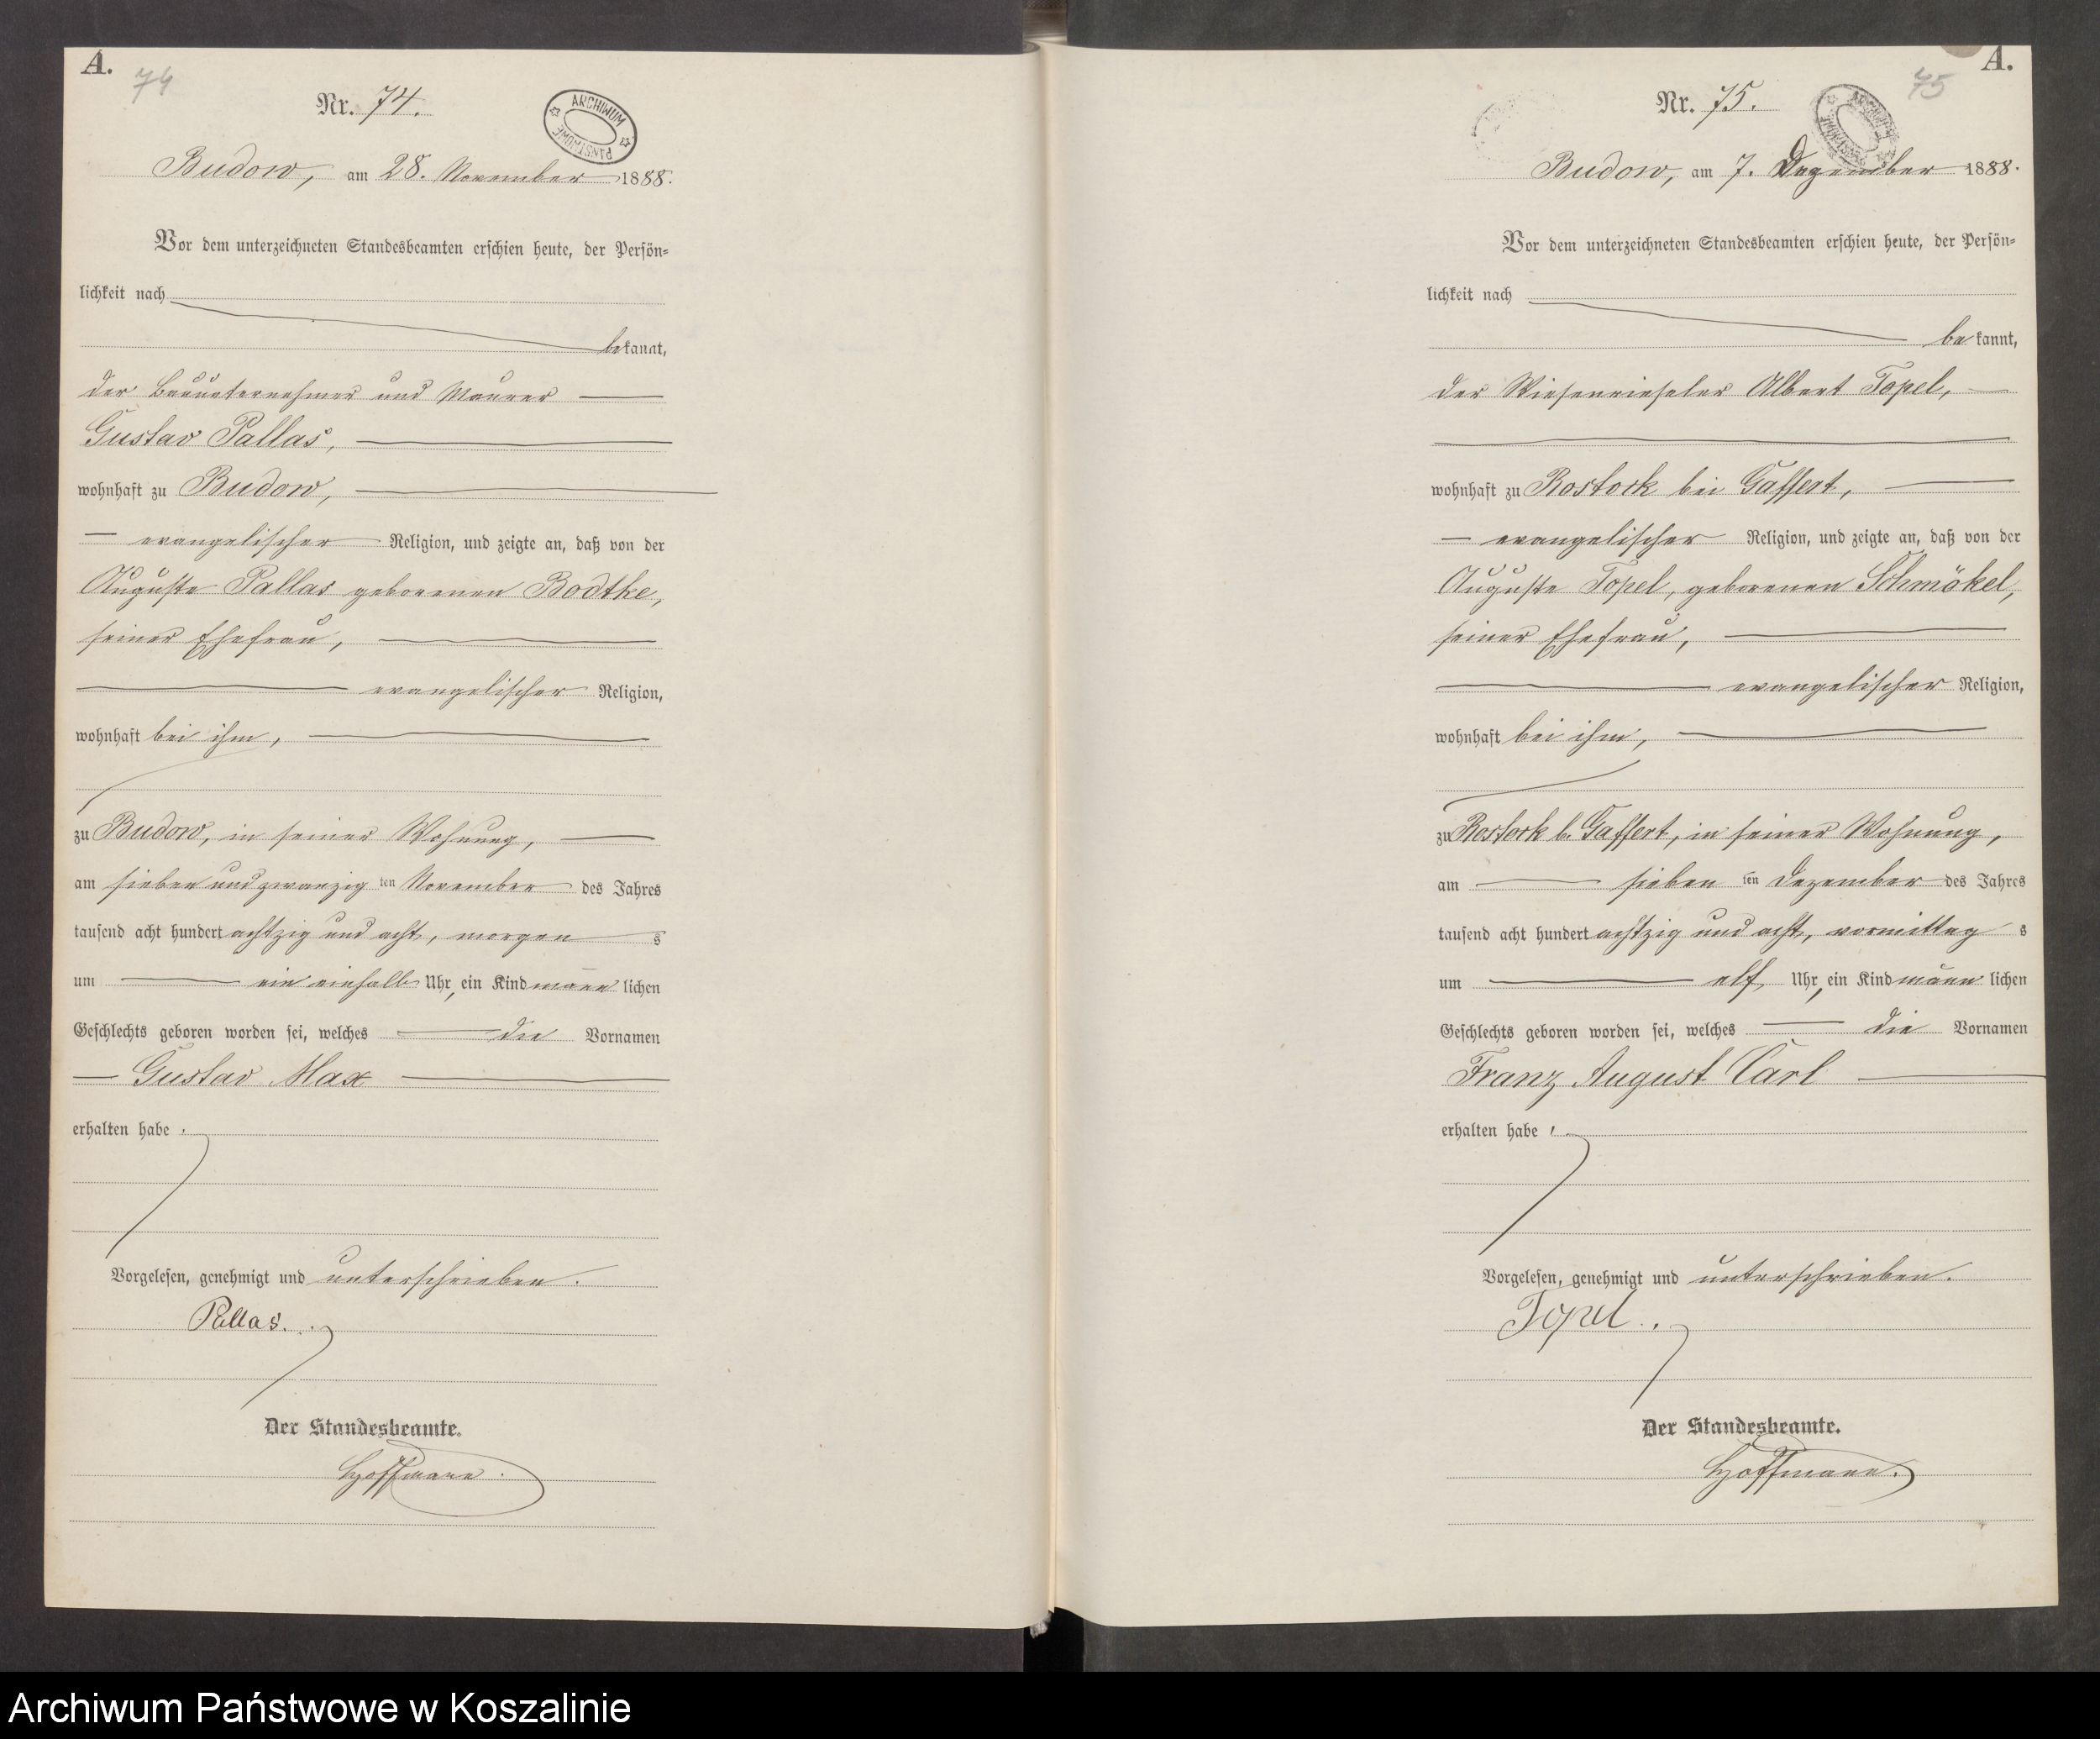 A.
74
Nr. 74.
ARCHIWUM PAŃSTWOWE
Budow, am 28. November 1888.
Vor dem unterzeichneten Standesbeamten erschien heute, der Persön=
lichkeit nach
bekannt,
der Bauunternehmer und Maurer
Gustav Pallas,
wohnhaft zu Budow,
evangelischer Religion, und zeigte an, daß von der
Auguste Pallas geborenen Bodtke,
seiner Ehefrau,
evangelischer Religion,
wohnhaft bei ihm,
zu Budow, in seiner Wohnung,
am sieben und zwanzig ten November des Jahres
tausend acht hundert achtzig und acht, morgen s
um ein einhalb Uhr, ein Kind männ lichen
Geschlechts geboren worden sei, welches die Vornamen
Gustav Max
erhalten habe.
Vorgelesen, genehmigt und unterschrieben.
Pallas.
Der Standesbeamte.
Hoffmann.
A.
75
Nr. 75.
ARCHIWUM PAŃSTWOWE
Budow, am 7. Dezember 1888.
Vor dem unterzeichneten Standesbeamten erschien heute, der Persön=
lichkeit nach
be kannt,
der Wiesenrieseler Albert Topel,
wohnhaft zu Rostock bei Gaffert,
evangelischer Religion, und zeigte an, daß von der
Auguste Topel, geborenen Schmökel,
seiner Ehefrau,
evangelischer Religion,
wohnhaft bei ihm,
zu Rostock b. Gaffert, in seiner Wohnung,
am sieben ten Dezember des Jahres
tausend acht hundert achtzig und acht, vormittag s
um elf Uhr, ein Kind männ lichen
Geschlechts geboren worden sei, welches die Vornamen
Franz August Carl
erhalten habe.
Vorgelesen, genehmigt und unterschrieben.
Topel.
Der Standesbeamte.
Hoffmann.
Archiwum Państwowe w Koszalinie